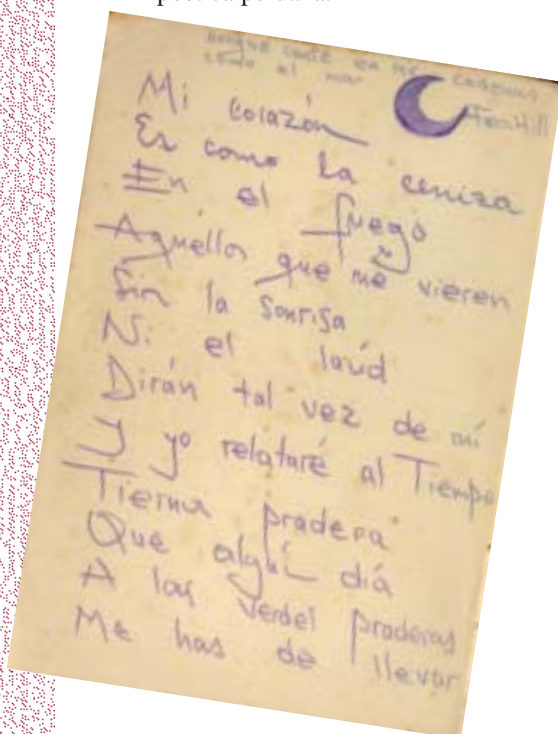 poética peruana.
aunque canté en mis cadenas
como el mar
Fern Hill
Mi corazón
Es como la ceniza
En el fuego
Aquellos que me vieren
Sin la sonrisa
Ni el laúd
Dirán tal vez de mí
Y yo relataré al Tiempo
Tierna pradera
Que algún día
A las verdes praderas
Me has de llevar